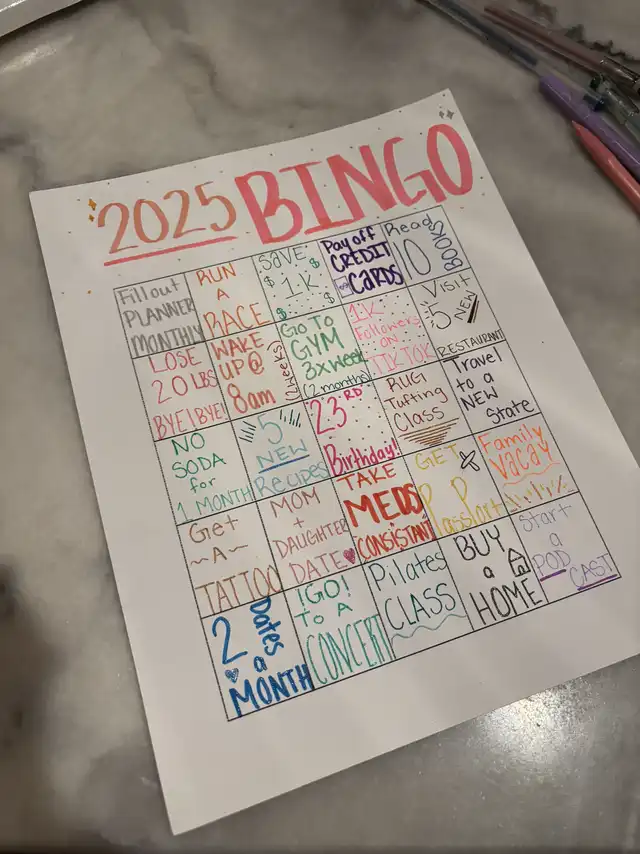 2025 BINGO
Fill out
PLANNER
MONTHLY
RUN
A
RACE
SAVE
$ $
1.K
$ $
Pay off
CREDIT
CARDS
Read
10 BOOKS
LOSE
20 LBS
BYE!BYE!
WAKE
UP@
8am
(2 weeks)
GO TO
GYM
3x week
(2 months)
1K
Followers
on
TIKTOK
Visit
5 NEW
RESTAURANT
NO
SODA
for
1 MONTH
5
NEW
Recipes
23RD
Birthday!
RUG
Tufting
Class
Travel
to a
NEW
State
Get
~A~
TATTOO
MOM
+
DAUGHTER
DATE
TAKE
MEDS
CONSISTANT
GET
A
Passport
Family
Vacay
2 Dates
a
MONTH
!GO!
to A
CONCERT
Pilates
CLASS
BUY
a
HOME
Start
a
POD
CAST